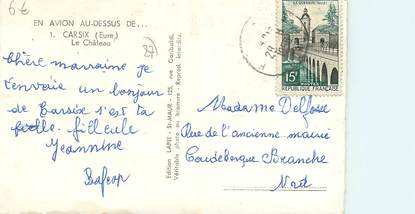 6€
EN AVION AU-DESSUS DE...
1. CARSIX (Eure)
Le Château
27
Chère marraine je
t'envoie un bonjour
de Carsix s'est ta
filleule
Jeannine
Edition LAPIE - St-MAUR - 125, rue Garibaldi.
Véritable photo au bromure - Reprod. interdite.
LE QUESNOY (Nord)
15F
POSTES
REPUBLIQUE FRANÇAISE
Madame Delfosse
Rue de l'ancienne mairie
Coudekerque Branche
Nord